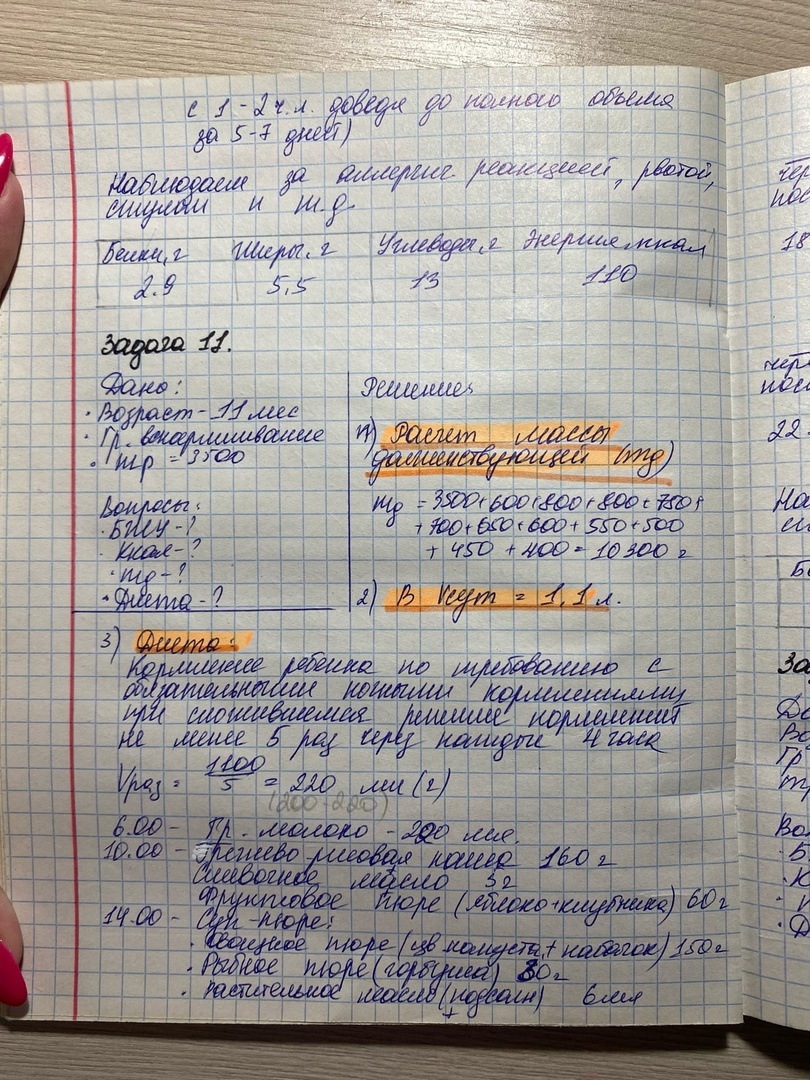 с 1-2 ч.л. доведя до полного объема
за 5-7 дней)
Наблюдаем за аллергич реакцией, рвотой,
стулом и т.д.
Белки, г Жиры, г Углеводы, г Энергия, ккал
2.9 5,5 13 110
Задача 11.
Дано:
• Возраст - 11 мес
• Гр. вскармливание
• mр = 3500
Вопросы:
• БЖУ - ?
• Ккал - ?
• mд - ?
• Диета - ?
Решение:
1) Расчет массы
долженствующей (mд)
mд = 3500+600+800+800+750+
+700+650+600+550+500
+450+400 = 10300 г
2) В Vсут = 1,1 л.
3) Диета:
Кормление ребенка по требованию с
обязательными ночными кормлениями
при сложившемся режиме кормлений
не менее 5 раз через каждые 4 часа
Vраз = 1100/5 = 220 мл (г)
(200-220)
6.00 - Гр. молоко - 200 мл.
10.00 - Гречнево рисовая каша 160 г
Сливочное масло 5г
Фруктовое пюре (яблоко+клубника) 60г
14.00 - Суп-пюре:
• Овощное пюре (цв капуста + кабачок) 150г
• Рыбное пюре (горбуша) 30г
• Растительное масло (подсолн) 6мл
чер
пос
18
чер
пос
22.
На
ст
Б
За
Д
Во
Гр
mр
Во
• Б
• К
• Д